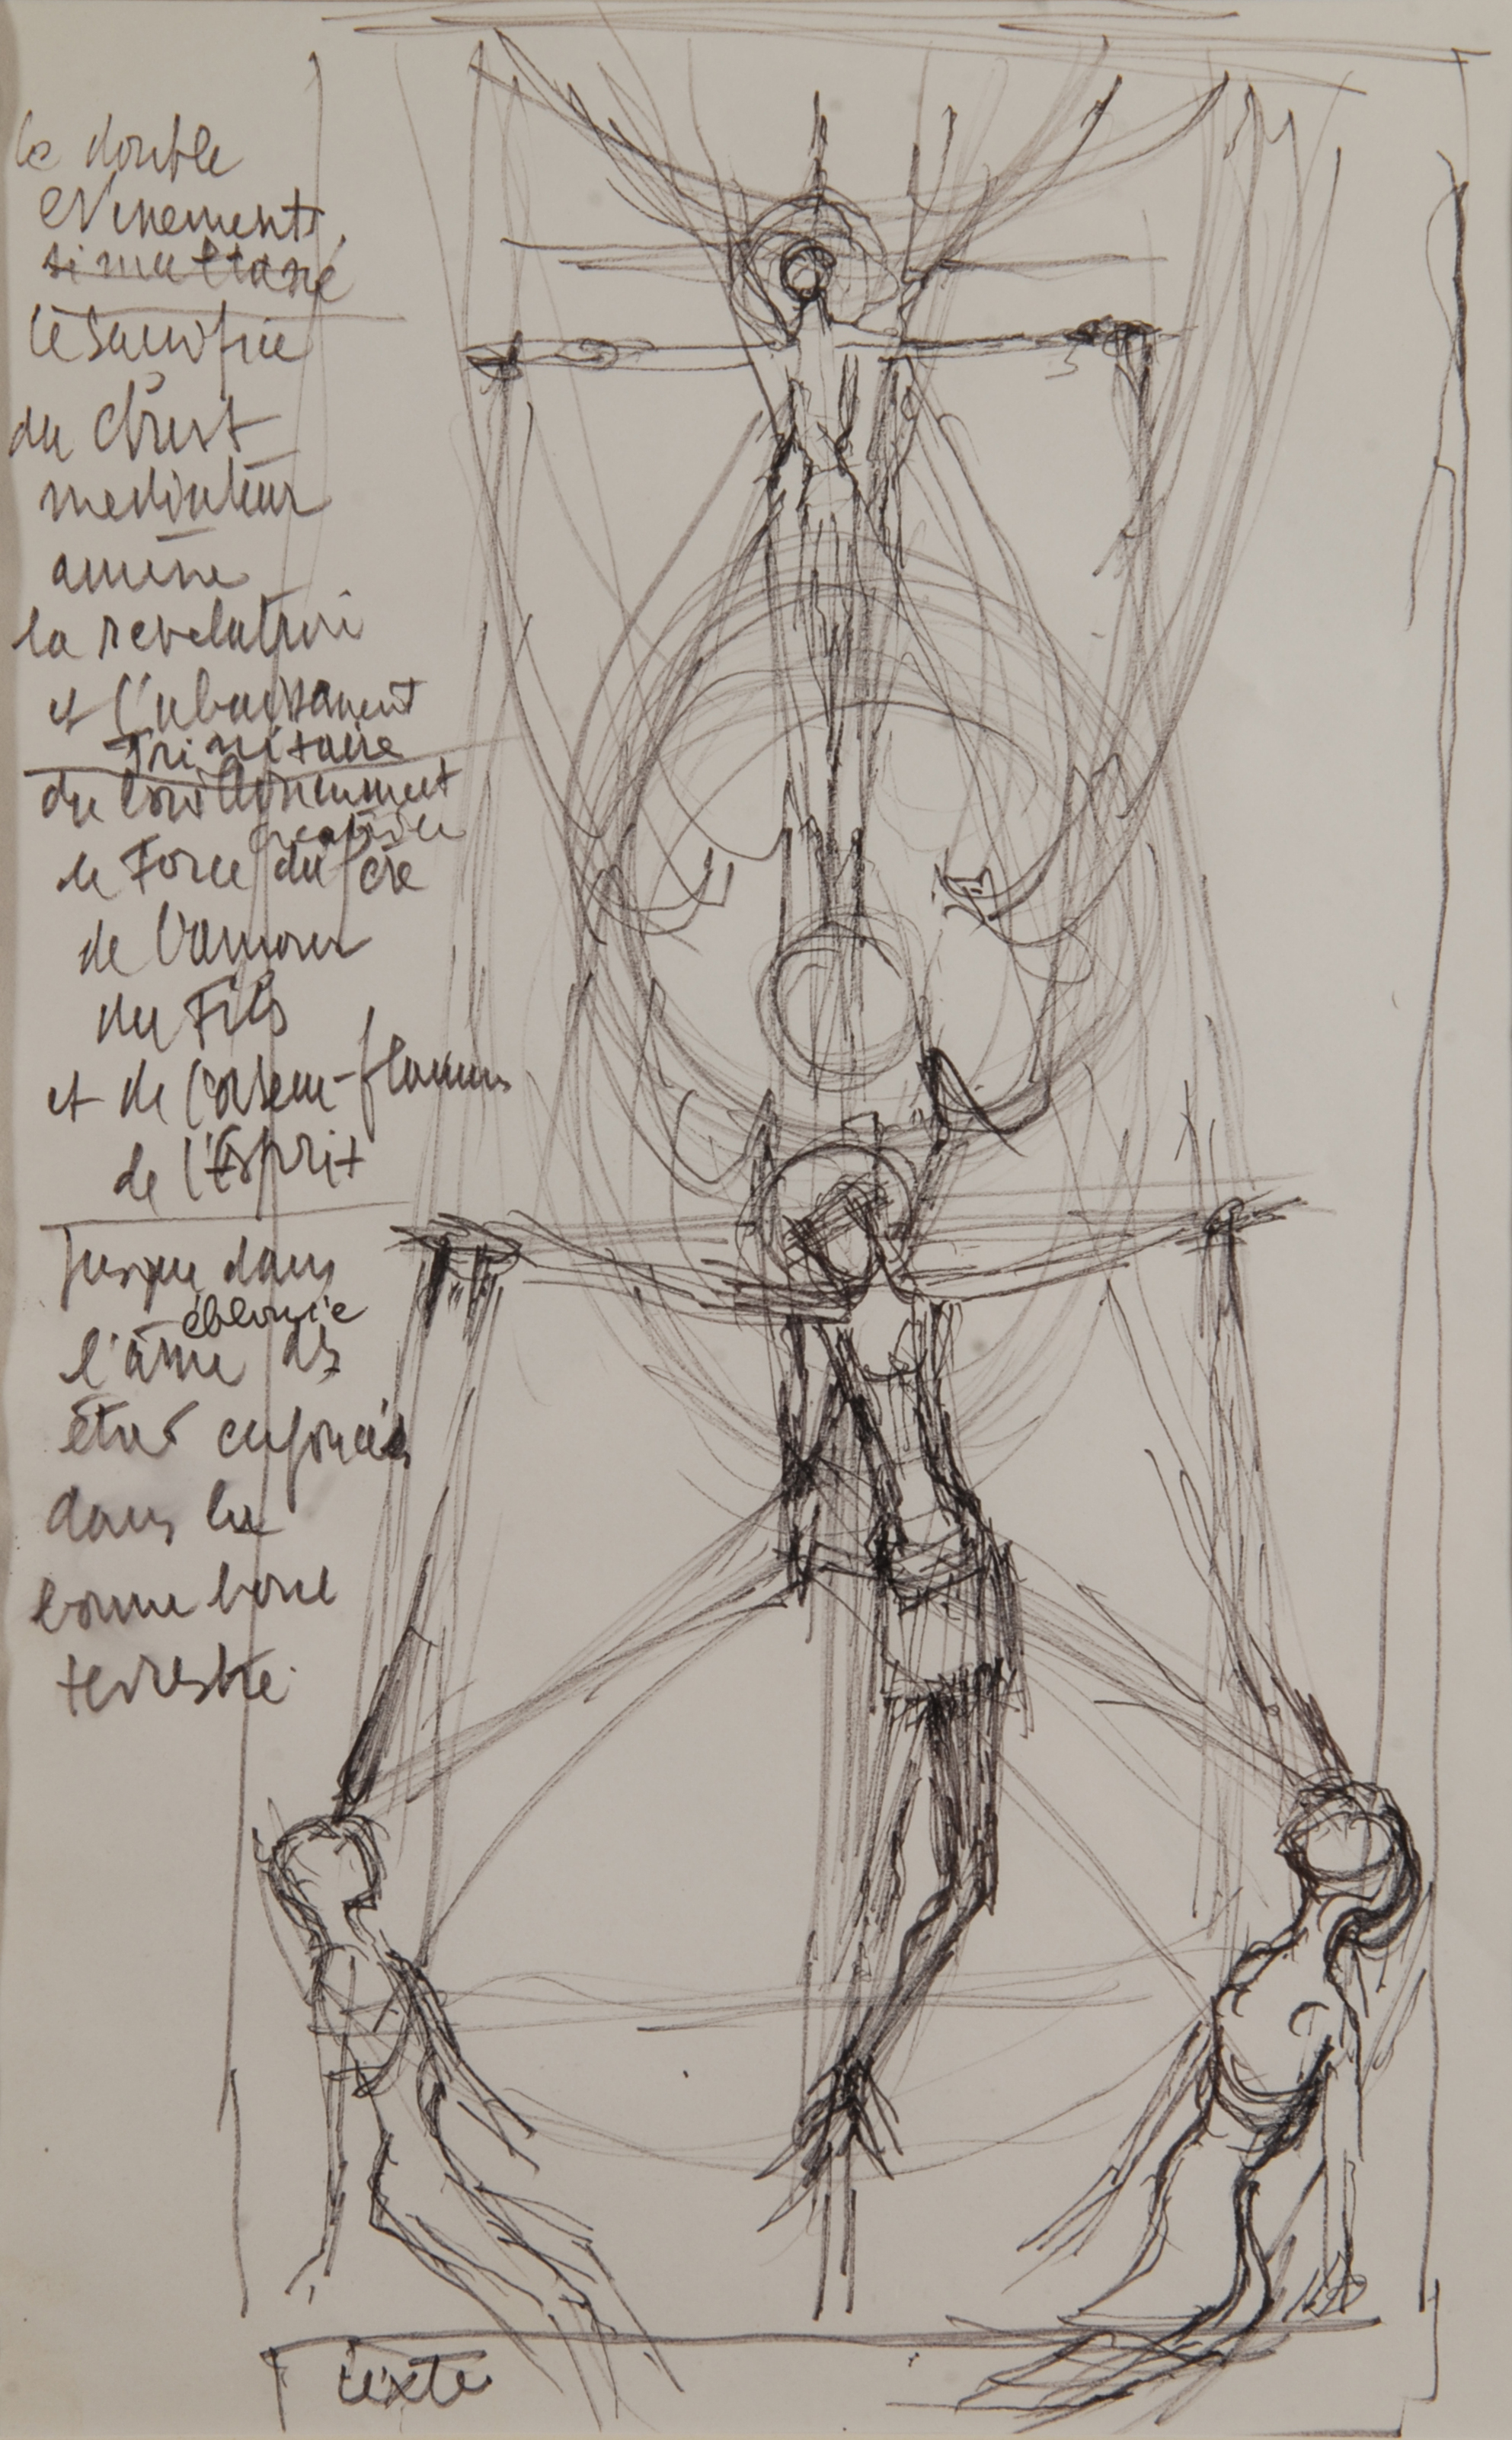 le double
evenements,
simultané
le sacrifice
du Christ
mediateur
amène
la revelation
et l'abaissement
Trinitaire
du bouillonnement
creatrice
de Force du Père
de l'amour
du Fils
et de l'oiseau-flamme
de l'Esprit
Jusque dans
éblouie
l'âme des
êtres enfoncés
dans la
bonne boue
terrestre.
texte